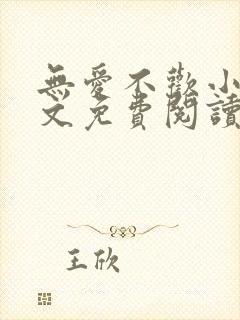 無愛不歡小
文免費閱讀
王欣